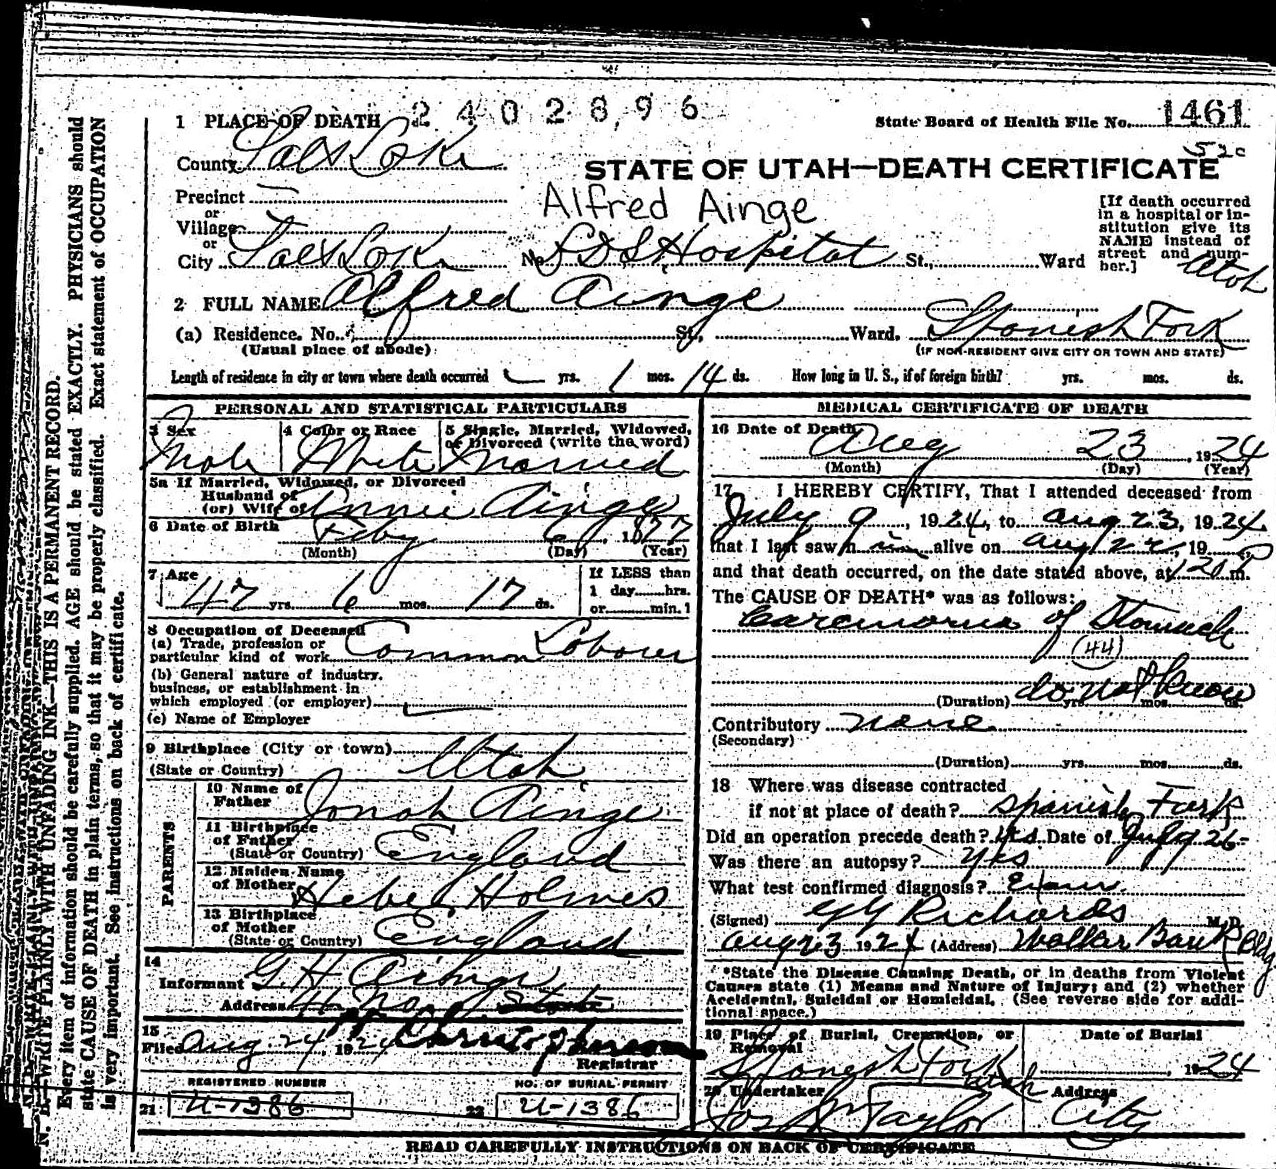 2402896
1 PLACE OF DEATH
State Board of Health File No. 1461
52c
County Salt Lake
STATE OF UTAH—DEATH CERTIFICATE
Precinct
Alfred Ainge
or
Village
or
City Salt Lake No. LDS Hospital St., Ward
[If death occurred
in a hospital or in-
stitution give its
NAME instead of
street and num-
ber.]
Utah
2 FULL NAME Alfred Ainge
(a) Residence. No. St, Ward, Spanish Fork
(Usual place of abode)
(IF NON-RESIDENT GIVE CITY OR TOWN AND STATE)
Length of residence in city or town where death occurred yrs. 1 mos. 14 ds. How long in U. S., if of foreign birth? yrs. mos. ds.
PERSONAL AND STATISTICAL PARTICULARS
3 Sex
Male
4 Color or Race
White
5 Single, Married, Widowed,
or Divorced (write the word)
Married
5a If Married, Widowed, or Divorced
Husband of
(or) Wife of Annie Ainge
6 Date of Birth Feby 6, 1877
(Month) (Day) (Year)
7 Age
47 yrs. 6 mos. 17 ds.
If LESS than
1 day hrs.
or min.?
8 Occupation of Deceased
(a) Trade, profession or
particular kind of work Common Laborer
(b) General nature of industry,
business, or establishment in
which employed (or employer)
(c) Name of Employer
9 Birthplace (City or town)
(State or Country) Utah
PARENTS
10 Name of
Father Jonah Ainge
11 Birthplace
of Father
(State or Country) England
12 Maiden Name
of Mother Hebe Holmes
13 Birthplace
of Mother
(State or Country) England
14
Informant G H Ainge
Address
15
Filed Aug. 24, 1924
Registrar
REGISTERED NUMBER
21 U-1386
NO. OF BURIAL PERMIT
22 U-1386
MEDICAL CERTIFICATE OF DEATH
16 Date of Death
Aug 23, 1924
(Month) (Day) (Year)
17 I HEREBY CERTIFY, That I attended deceased from
July 9, 1924, to Aug 23, 1924
that I last saw him alive on Aug 22, 19
and that death occurred, on the date stated above, at 120 P m.
The CAUSE OF DEATH* was as follows:
Carcinoma of Stomach
(44)
(Duration) do not know yrs. mos. ds.
Contributory none
(Secondary)
(Duration) yrs. mos. ds.
18 Where was disease contracted
if not at place of death? Spanish Fork
Did an operation precede death? Yes Date of July 26
Was there an autopsy? Yes
What test confirmed diagnosis? Exam.
(Signed) G G Richards M.D.
Aug 23, 1924 (Address) Walker Bank Bldg
*State the Disease Causing Death, or in deaths from Violent
Causes state (1) Means and Nature of Injury; and (2) whether
Accidental, Suicidal or Homicidal. (See reverse side for addi-
tional space.)
19 Place of Burial, Cremation, or
Removal
Spanish Fork Utah
Date of Burial
, 1924
20 Undertaker
Jos Wm Taylor
Address
City
READ CAREFULLY INSTRUCTIONS ON BACK OF CERTIFICATE
N. B. WRITE PLAINLY WITH UNFADING INK—THIS IS A PERMANENT RECORD.
Every item of information should be carefully supplied. AGE should be stated EXACTLY. PHYSICIANS should
state CAUSE OF DEATH in plain terms, so that it may be properly classified. Exact statement of OCCUPATION
is very important. See instructions on back of certificate.